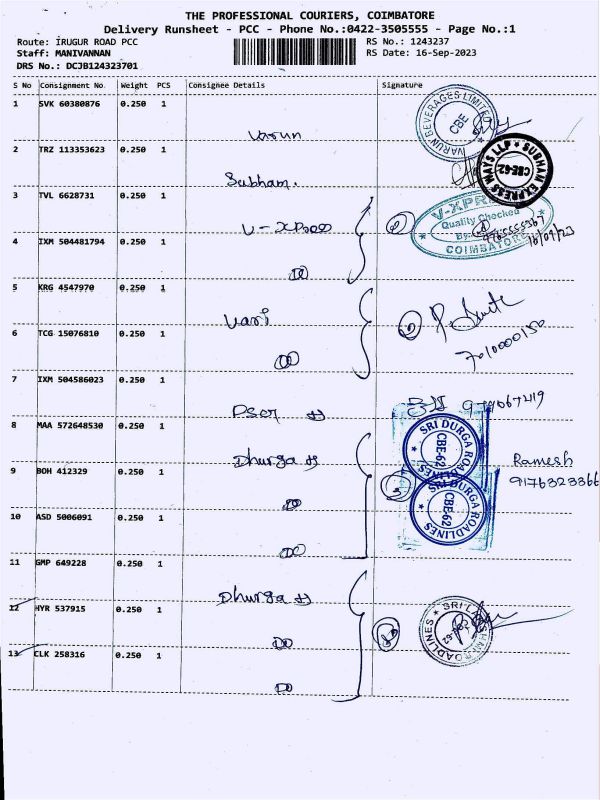 THE PROFESSIONAL COURIERS, COIMBATORE
Delivery Runsheet - PCC - Phone No.:0422-3505555 - Page No.:1
Route: IRUGUR ROAD PCC
RS No.: 1243237
Staff: MANIVANNAN
RS Date: 16-Sep-2023
DRS No.: DCJB124323701
S No Consignment No. Weight PCS Consignee Details Signature
1 SVK 60380876 0.250 1
Varun
VARUN BEVERAGES LIMITED CBE
2 TRZ 113353623 0.250 1
Subham.
SUBHAM EXPRESS WAYS LLP CBE-62
3 TVL 6628731 0.250 1
V-XPRESS
Quality Checked
By:
COIMBATORE
16/09/23
4 IXM 504481794 0.250 1
5 KRG 4547970 0.250 1
7010000150
6 TCG 15076810 0.250 1
7 IXM 504586023 0.250 1
8 MAA 572648530 0.250 1
Dhurga
SRI DURGA ROADLINES CBE-62
Ramesh
9 BOH 412329 0.250 1
9176323366
SRI DURGA ROADLINES CBE-62
10 ASD 5006091 0.250 1
11 GMP 649228 0.250 1
Dhurga
12 HYR 537915 0.250 1
13 CLK 258316 0.250 1